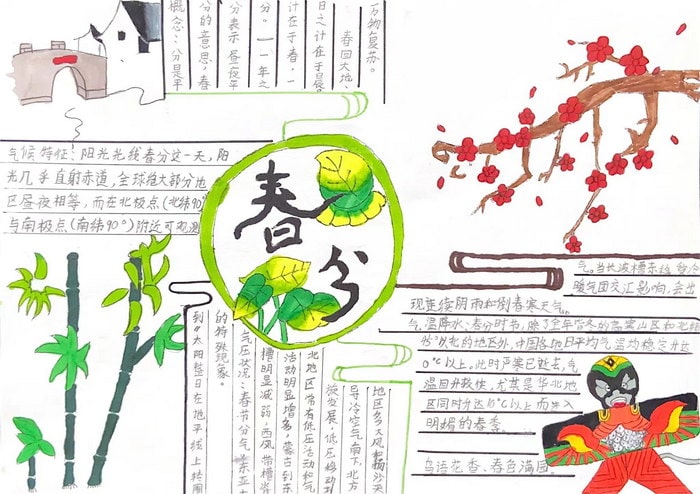 概念:分是平
分的意思,春
分表示昼夜平
分。一一年之
计在于春,一
日之计在于晨。
春回大地、
万物复苏。
春分
气候特征:阳光光线春分这一天,阳
光几乎直射赤道,全球绝大部分地
区昼夜相等,而在北极点(北纬90°)
与南极点(南纬90°)附近可观测
到"太阳整日在地平线上转圈
的特殊现象。
气压状况:春节分气 东亚大
槽明显减弱,西风带槽脊
活动明显增多,蒙古到东
北地区常有低压活动和气
旋发展,低压移动引
导冷空气南下,北方
地区多大风和扬沙天
气。当长波槽东移
暖气团交汇影响,会出
现连续阴雨和倒春寒天气。
气温降水:春分时节,除了全年皆冬的高寒山区和北纬
45°以北的地区外,中国各地日平均气温均稳定升达
0℃以上。此时严寒已逝去,气
温回升较快,尤其是华北地
区同时分达10℃以上而步入
明媚的春季。
鸟语花香、春色满园。